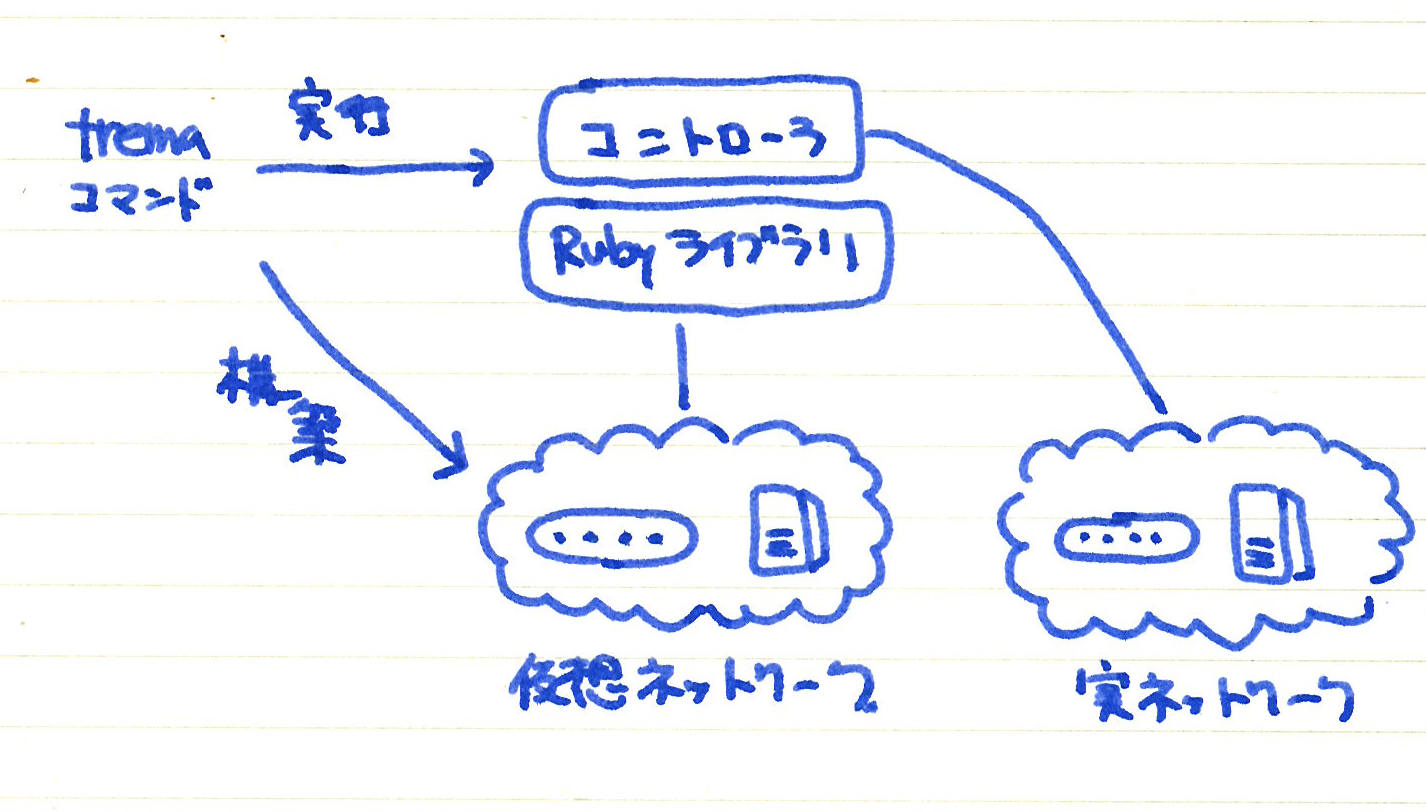 trema
コマンド
実行
コントローラ
Ruby ライブラリ
構
築
仮想ネットワーク
実ネットワーク